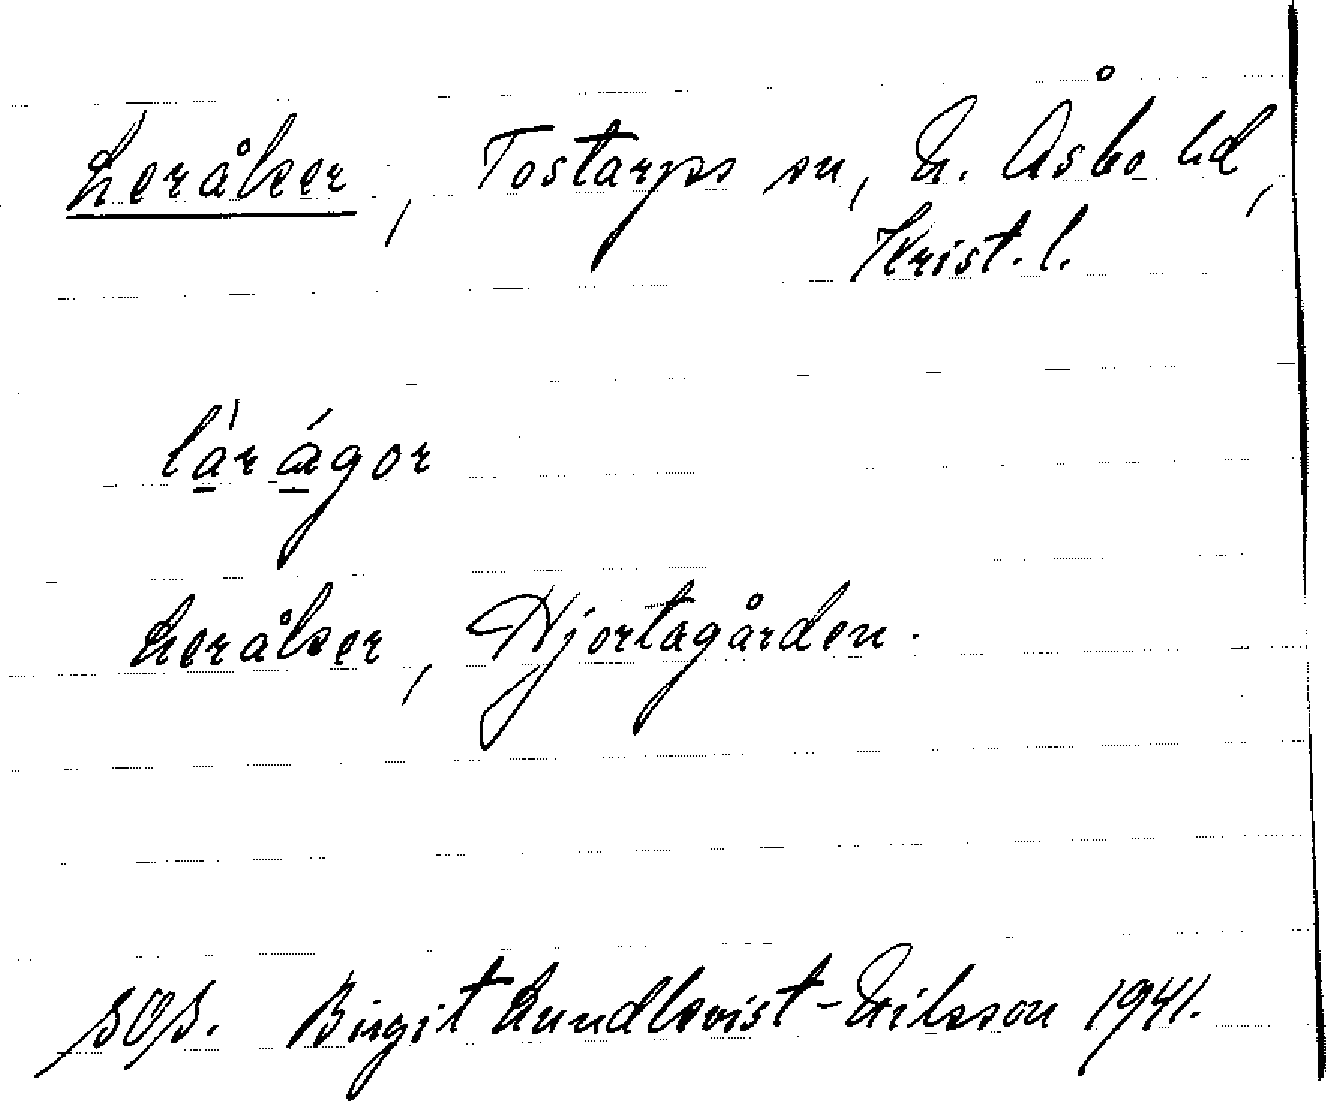 Leråker, Tostarps sn, N. Åsbo hd,
Krist. l.
lárágor
Leråker, Hjortagården.
SOS. Birgit Lundkvist-Nilsson 1941.